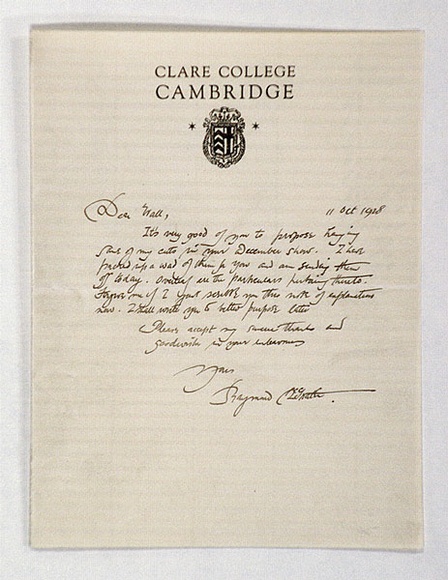 CLARE COLLEGE
CAMBRIDGE
Dear Wall, 11 Oct 1928
It's very good of you to propose having
some of my cuts in your December show. I have
proofed a wad of them for you and am sending them
off today. are the particulars pertaining thereto.
Forgive me if I just scribble you this note of explanation
now. I shall write you to better purpose later
Please accept my sincere thanks and
goodwishes in your
Yours
Raymond McGrath.